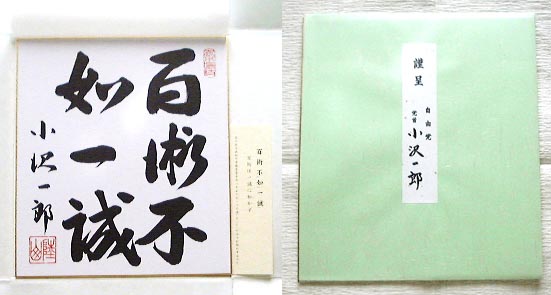 百術不
如一誠
小沢一郎
百術不如一誠
謹呈
自由党
党首
小沢一郎